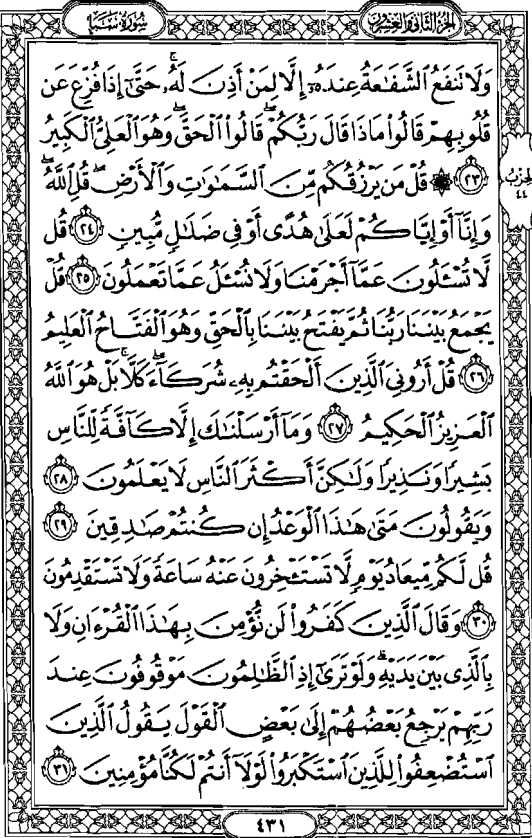 الجزء الثاني والعشرون سورة سبأ
وَلَا تَنفَعُ ٱلشَّفَـٰعَةُ عِندَهُۥٓ إِلَّا لِمَنْ أَذِنَ لَهُۥ ۚ حَتَّىٰٓ إِذَا فُزِّعَ عَن
قُلُوبِهِمْ قَالُوا۟ مَاذَا قَالَ رَبُّكُمْ ۖ قَالُوا۟ ٱلْحَقَّ ۖ وَهُوَ ٱلْعَلِىُّ ٱلْكَبِيرُ
٢٣ ۞ قُلْ مَن يَرْزُقُكُم مِّنَ ٱلسَّمَـٰوَٰتِ وَٱلْأَرْضِ ۖ قُلِ ٱللَّهُ ۖ
الحزب ٤٤
وَإِنَّآ أَوْ إِيَّاكُمْ لَعَلَىٰ هُدًى أَوْ فِى ضَلَـٰلٍ مُّبِينٍ ٢٤ قُل
لَّا تُسْـَٔلُونَ عَمَّآ أَجْرَمْنَا وَلَا نُسْـَٔلُ عَمَّا تَعْمَلُونَ ٢٥ قُلْ
يَجْمَعُ بَيْنَنَا رَبُّنَا ثُمَّ يَفْتَحُ بَيْنَنَا بِٱلْحَقِّ وَهُوَ ٱلْفَتَّاحُ ٱلْعَلِيمُ
٢٦ قُلْ أَرُونِىَ ٱلَّذِينَ أَلْحَقْتُم بِهِۦ شُرَكَآءَ ۖ كَلَّا ۚ بَلْ هُوَ ٱللَّهُ
ٱلْعَزِيزُ ٱلْحَكِيمُ ٢٧ وَمَآ أَرْسَلْنَـٰكَ إِلَّا كَآفَّةً لِّلنَّاسِ
بَشِيرًا وَنَذِيرًا وَلَـٰكِنَّ أَكْثَرَ ٱلنَّاسِ لَا يَعْلَمُونَ ٢٨
وَيَقُولُونَ مَتَىٰ هَـٰذَا ٱلْوَعْدُ إِن كُنتُمْ صَـٰدِقِينَ ٢٩
قُل لَّكُم مِّيعَادُ يَوْمٍ لَّا تَسْتَـْٔخِرُونَ عَنْهُ سَاعَةً وَلَا تَسْتَقْدِمُونَ
٣٠ وَقَالَ ٱلَّذِينَ كَفَرُوا۟ لَن نُّؤْمِنَ بِهَـٰذَا ٱلْقُرْءَانِ وَلَا
بِٱلَّذِى بَيْنَ يَدَيْهِ ۗ وَلَوْ تَرَىٰٓ إِذِ ٱلظَّـٰلِمُونَ مَوْقُوفُونَ عِندَ
رَبِّهِمْ يَرْجِعُ بَعْضُهُمْ إِلَىٰ بَعْضٍ ٱلْقَوْلَ يَقُولُ ٱلَّذِينَ
ٱسْتُضْعِفُوا۟ لِلَّذِينَ ٱسْتَكْبَرُوا۟ لَوْلَآ أَنتُمْ لَكُنَّا مُؤْمِنِينَ ٣١
٤٣١